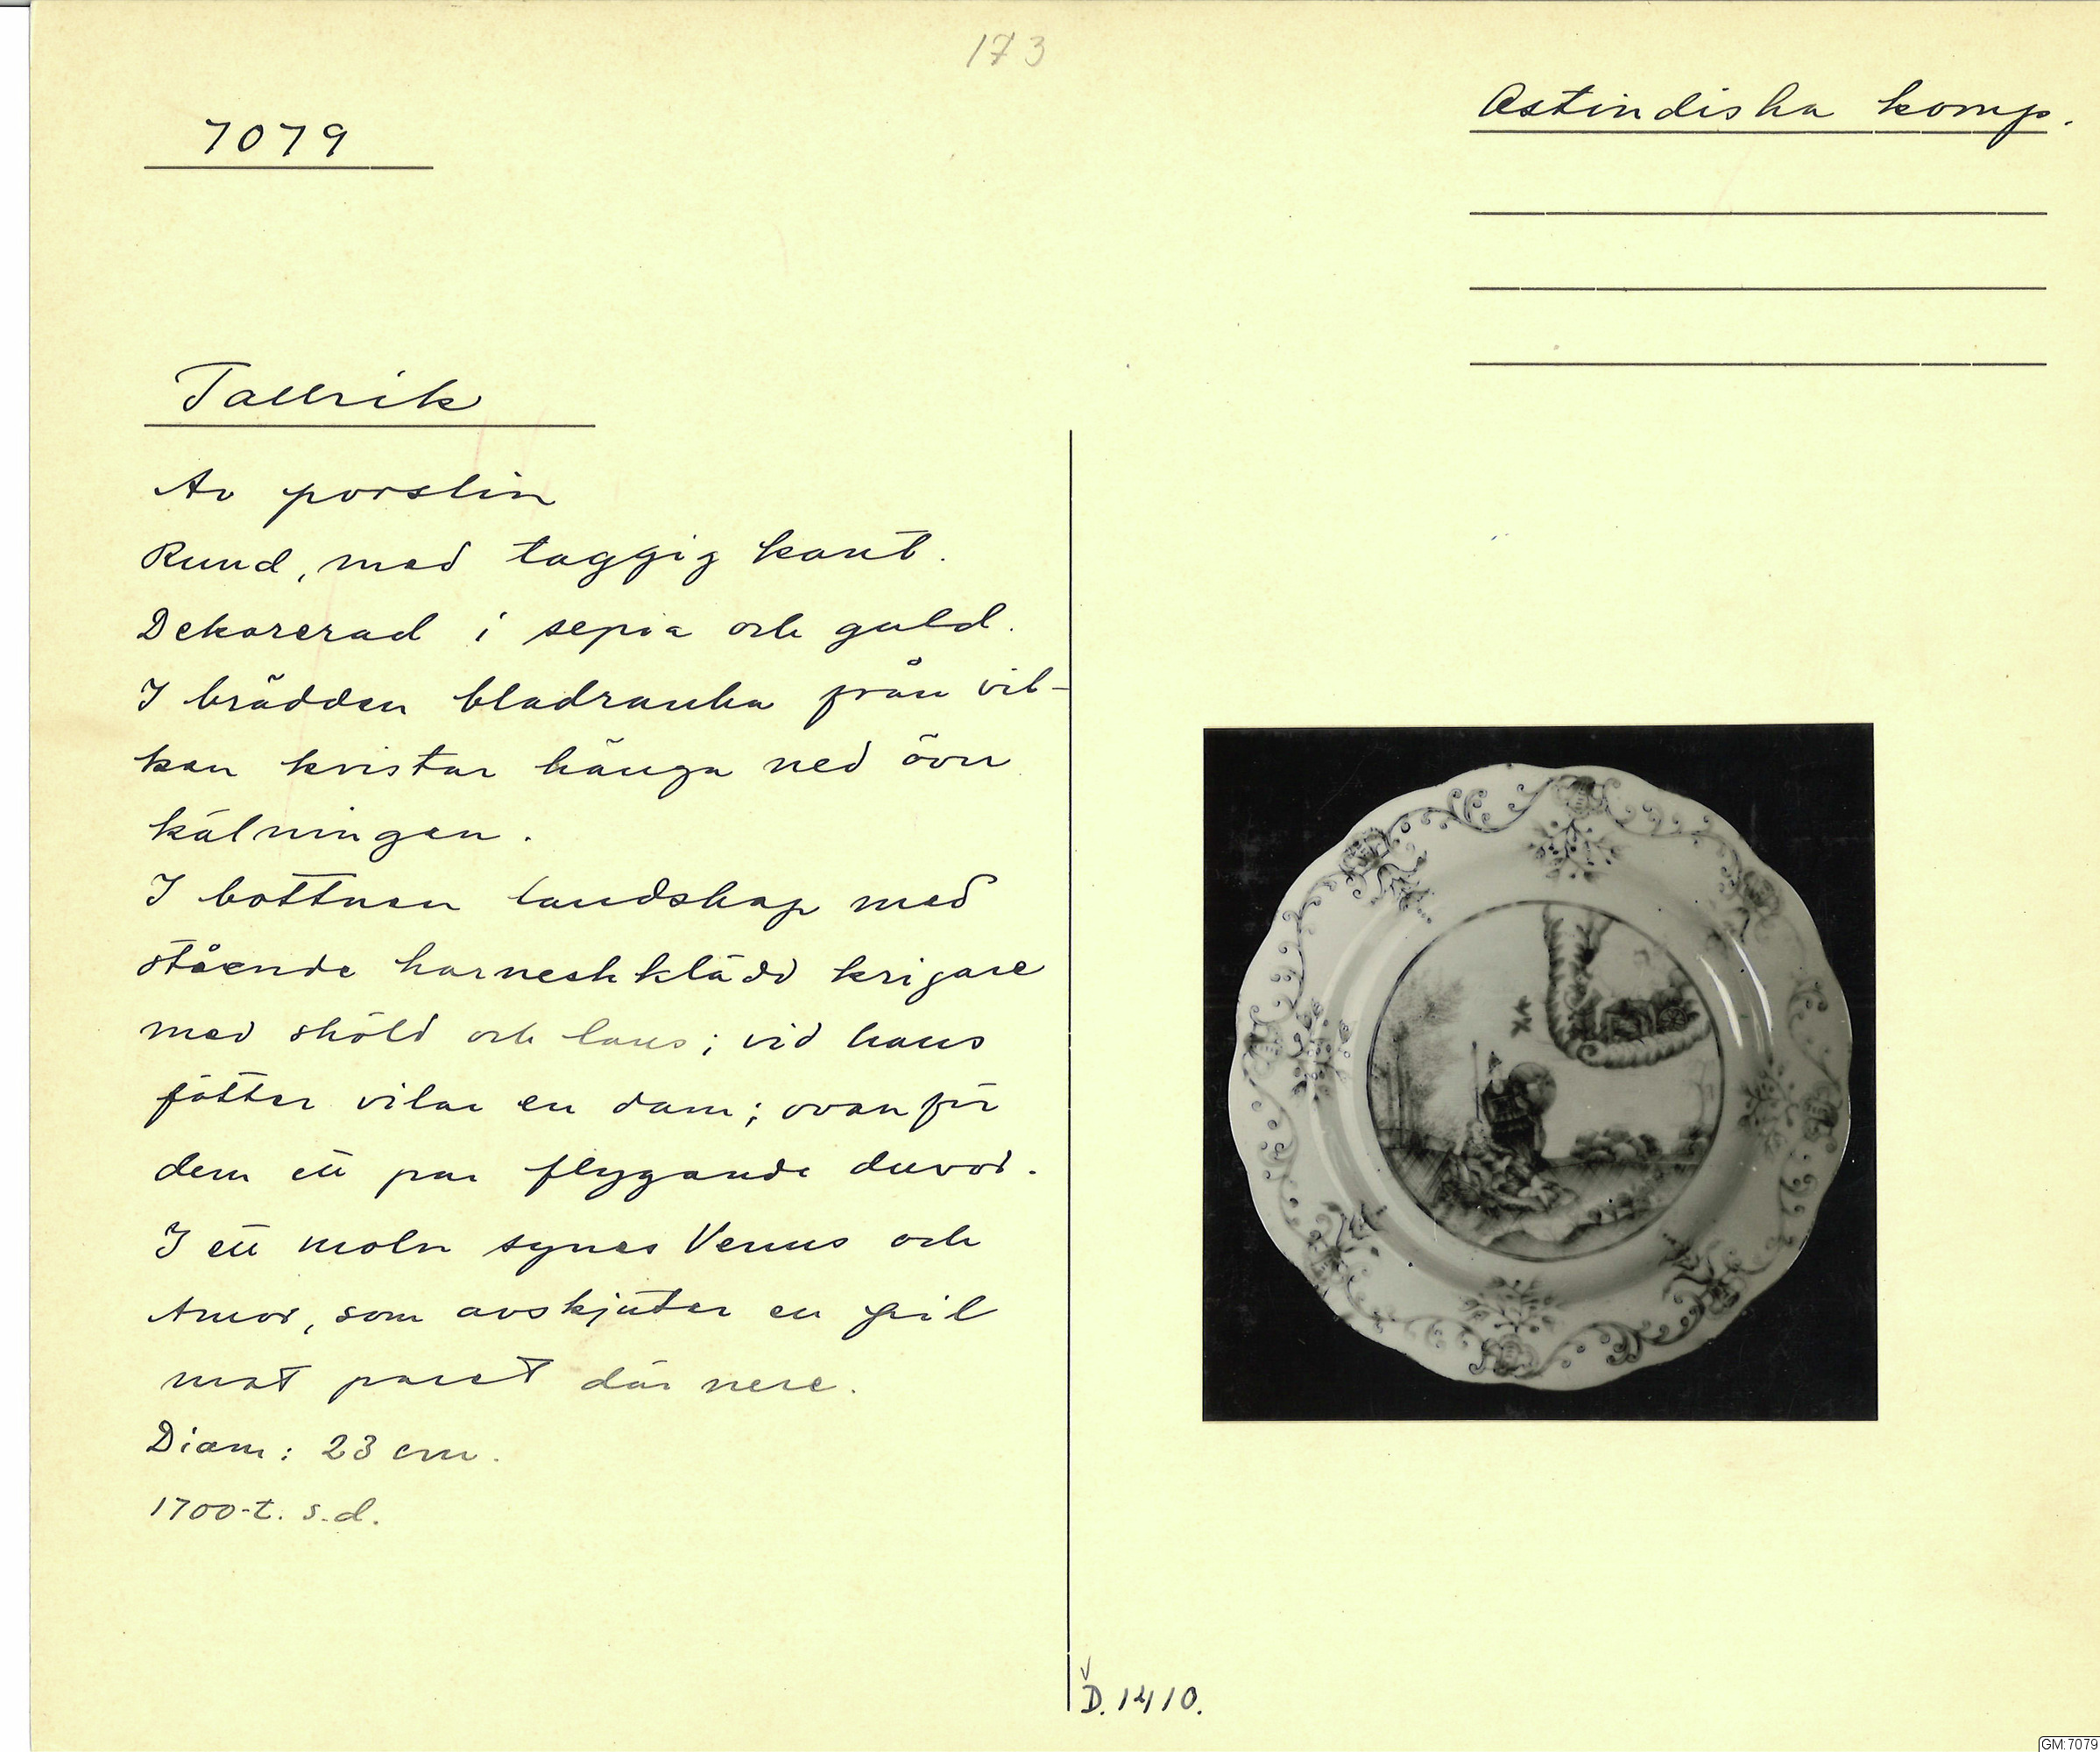 173
7079
Ostindiska komp.
Tallrik
Av porslin
Rund, med taggig kant.
Dekorerad i sepia och guld.
I brädden bladranka från vil-
ken kvistar hänga ned över
kälningen.
I bottnen landskap med
stående harneskklädd krigare
med sköld och lans; vid hans
fötter vilar en dam; ovanför
dem ett par flygande duvor.
I ett moln synes Venus och
Amor, som avskjuter en pil
mot paret där nere.
Diam: 23 cm.
1700-t. s.d.
D. 1410.
GM:7079